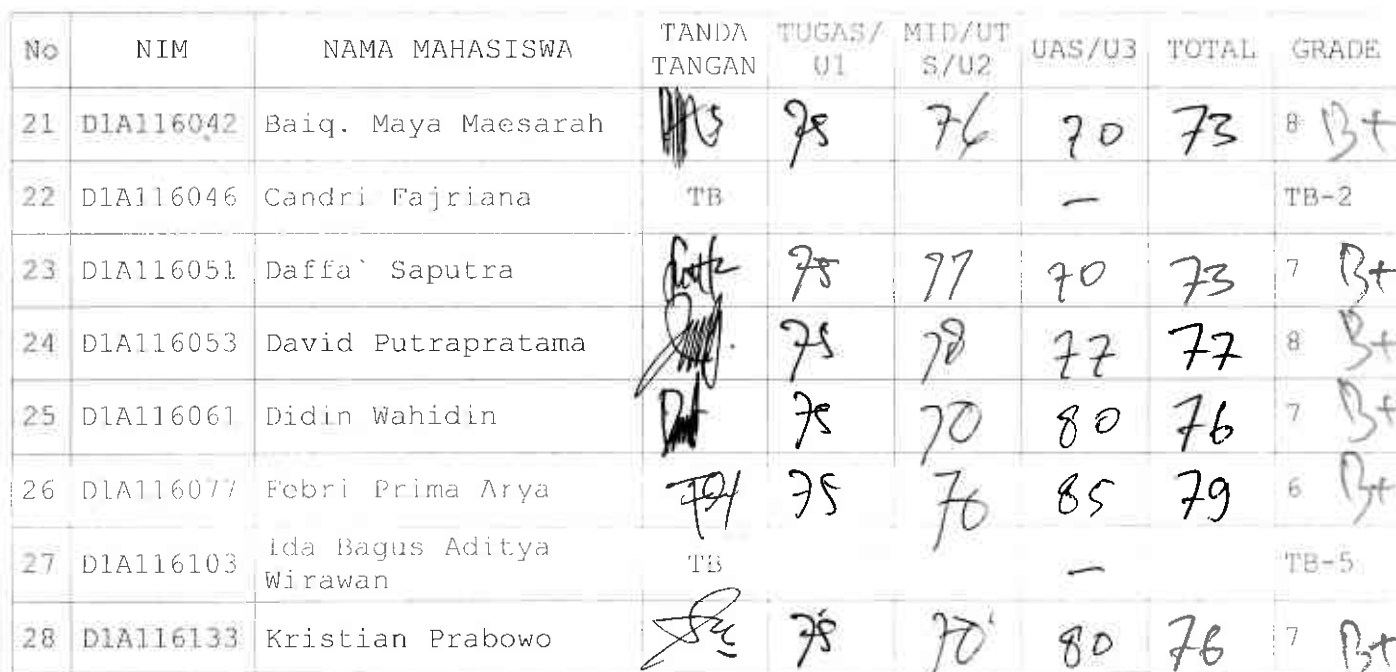 No NIM NAMA MAHASISWA TANDA TANGAN TUGAS/U1 MID/UTS/U2 UAS/U3 TOTAL GRADE
21 D1A116042 Baiq. Maya Maesarah 75 76 70 73 8 B+
22 D1A116046 Candri Fajriana TB — TB-2
23 D1A116051 Daffa` Saputra 75 77 70 73 7 B+
24 D1A116053 David Putrapratama 75 78 77 77 8 B+
25 D1A116061 Didin Wahidin 75 70 80 76 7 B+
26 D1A116077 Febri Prima Arya 75 76 85 79 6 B+
27 D1A116103 Ida Bagus Aditya Wirawan TB — TB-5
28 D1A116133 Kristian Prabowo 75 70 80 76 7 B+